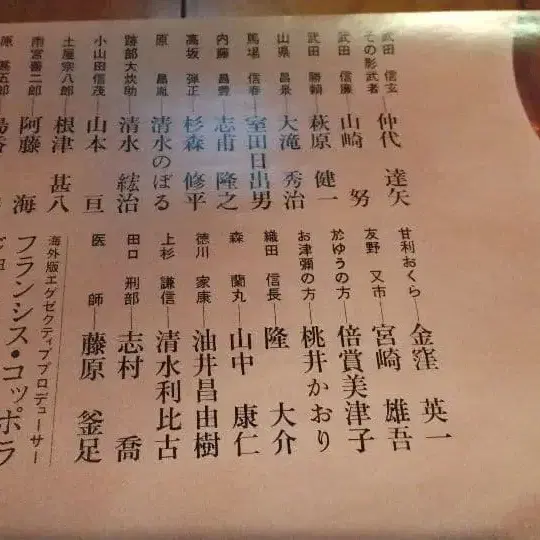 武田 信玄
その影武者 仲代 達矢
武田 信廉 山崎 努
武田 勝頼 萩原 健一
山県 昌景 大滝 秀治
馬場 信春 室田日出男
内藤 昌豊 志甫 隆之
高坂 弾正 杉森 修平
原 昌胤 清水のぼる
跡部大炊助 清水 綋治
小山田信茂 山本 亘
土屋宗八郎 根津 甚八
雨宮善二郎 阿藤 海
原 甚五郎
甘利おくら 金窪 英一
友野 又市 宮崎 雄吾
於ゆうの方 倍賞美津子
お津彌の方 桃井かおり
織田 信長 隆 大介
森 蘭丸 山中 康仁
徳川 家康 油井昌由樹
上杉 謙信 清水利比古
田口 刑部 志村 喬
医 師 藤原 釜足
海外版エグゼクティブプロデューサー
フランシス・コッポラ